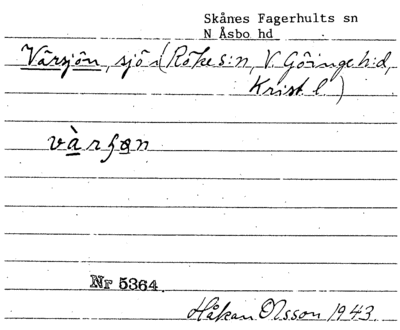 Skånes Fagerhults sn
N Åsbo hd
Värsjön, sjö i (Röke s:n, V. Göinge h:d,
Krist. l.)
vàrʃɷn
Nr 5364
Håkan Olsson 1943.